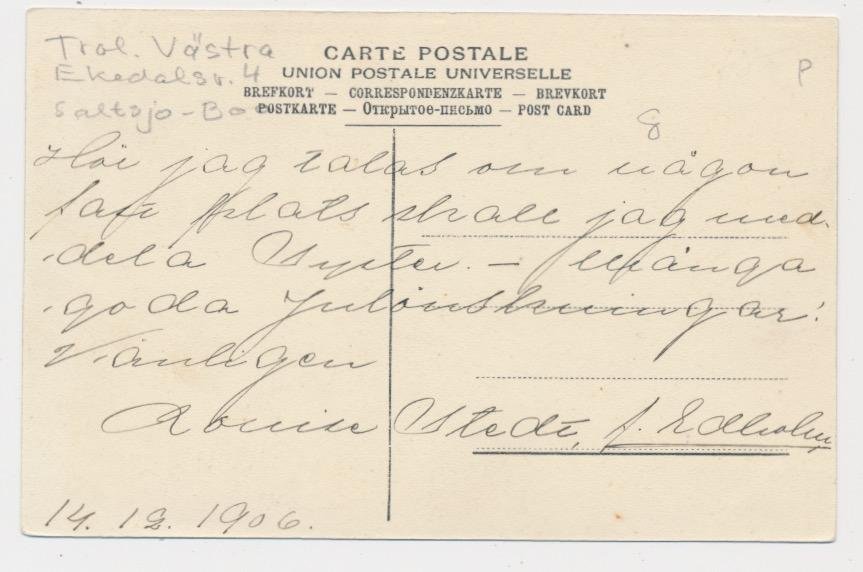 Trol. Västra
Ekedalsv. 4
Saltsjö-Boo
P
CARTE POSTALE
UNION POSTALE UNIVERSELLE
BREFKORT — CORRESPONDENZKARTE — BREVKORT
POSTKARTE — Открытое-письмо — POST CARD
8
Hör jag talas om någon
fast plats skall jag med-
dela Syster. — Många
goda Julönskningar!
Vänligen
Louise Stedt, f. Edholm
14. 12. 1906.